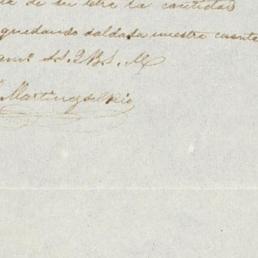 de su letra la cantidad
quedando saldada nuestra cuenta
S. S. Q. B. S. M.
Martinez del Rio